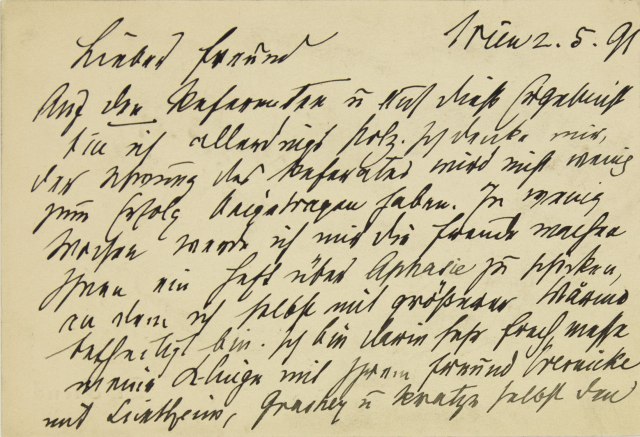 Wien 2. 5. 91
Lieber Freund
Auf den Referenten u auf dieß Ergebniß
bin ich allerdings stolz. Ich denke mir,
der Schwung des Referates wird nicht wenig
zum Erfolg beigetragen haben. In wenig
Wochen werde ich mir die Freude machen
Ihnen ein Heft über Aphasie zu schicken,
an dem ich selbst mit größerer Wärme
betheiligt bin. Ich bin darin sehr frech, messe
meine Klinge mit Ihrem Freund Wernicke
mit Lichtheim, Grashey u kratze selbst den